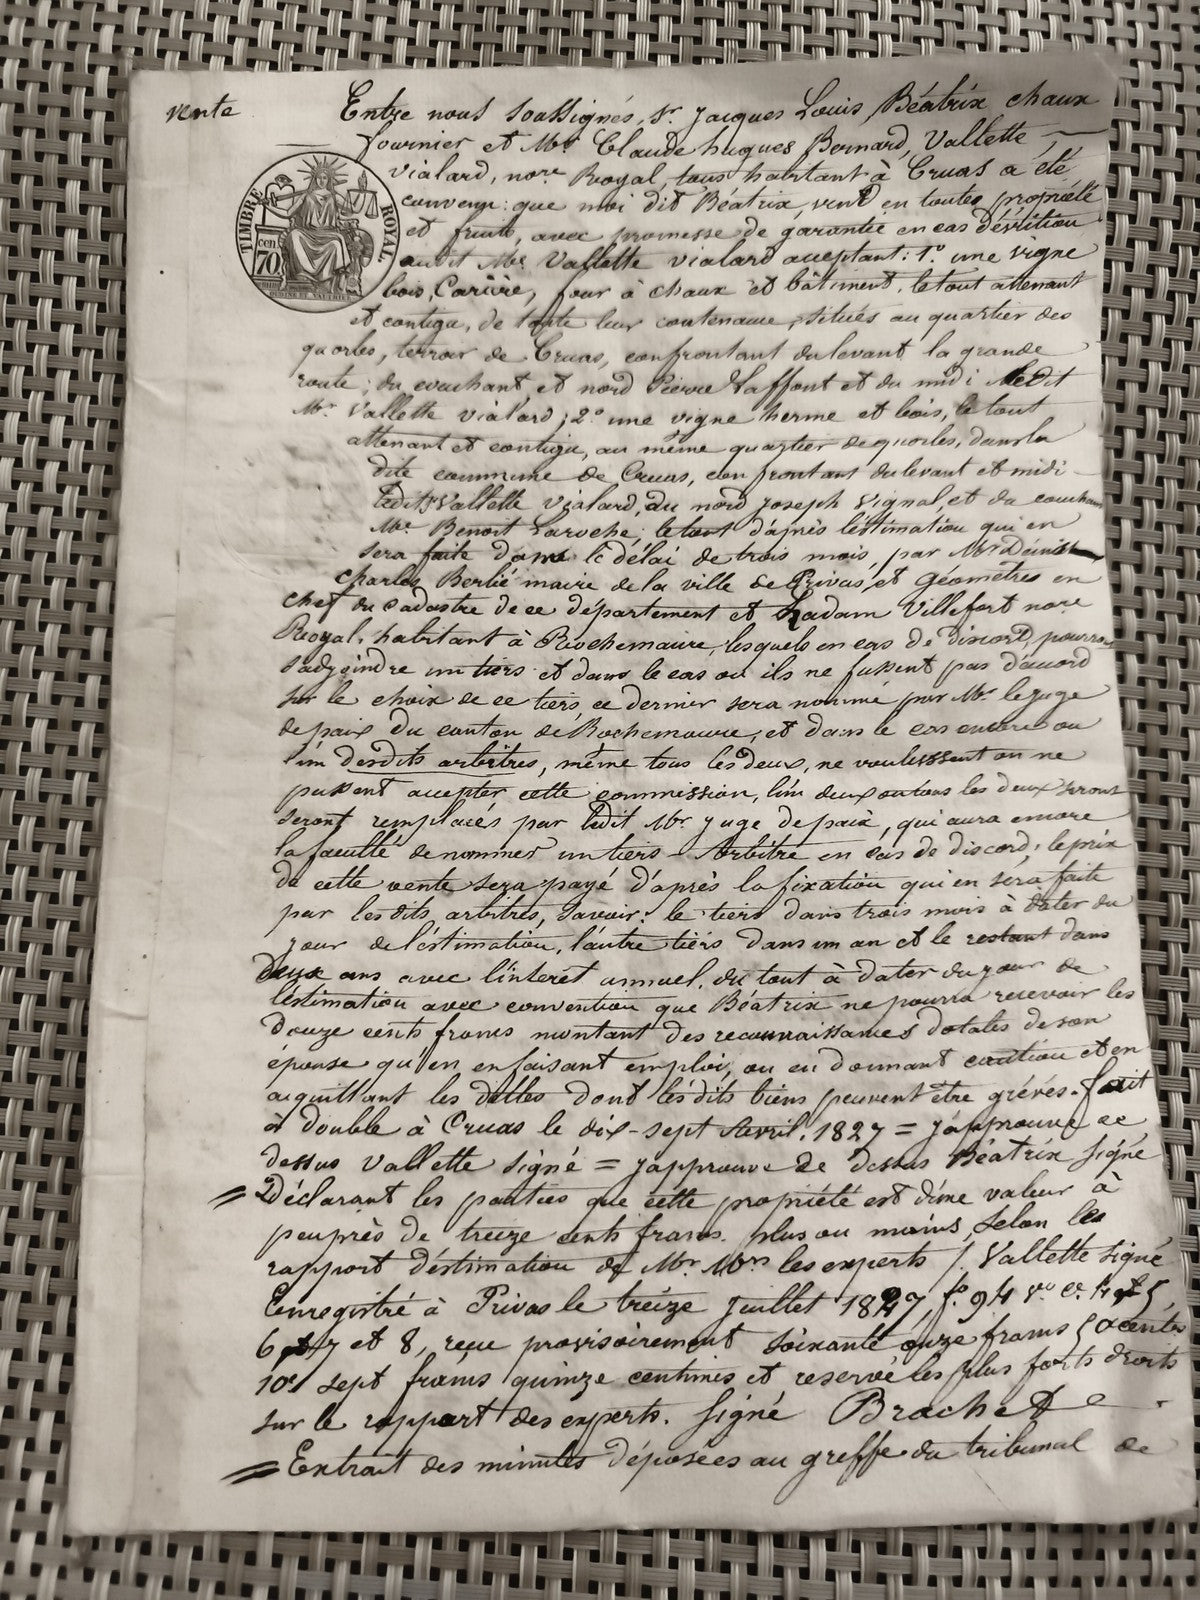 vente
Entre nous soussignés, Sr. Jacques Louis Béatrix chaux
fournier et Mr. Claude hugues Bernard, Vallette
vialard, nore Royal, tous habitant à Cruas a été
convenu: que moi dit Béatrix, vend en toutes propriété
et fruits, avec promesse de garantie en cas d'éviction
audit Me. Vallette vialard acceptant: 1º. une vigne
bois, Carière, four à chaux et bâtiment, le tout attenant
TIMBRE ROYAL
cen
70
et contigu, de toute leur contenance, situés au quartier des
quorles, terroir de Cruas, confrontant du levant la grande
route; du couchant et nord Pierre Laffont et du midi ledit
Mr. Vallette vialard; 2º. une vigne herme et bois, le tout
attenant et contigu, au même quartier de quorles, dans la
dite commune de Cruas, confrontant du levant et midi
ledit Vallette vialard, du nord joseph Vignal, et du couchant
Me. Benoit Laroche; le tout d'après l'éstimation qui en
sera faite dans le délai de trois mois, par Mr
Charles Berlié maire de la ville de Privas, et géomètres en
chef du cadastre de ce département et Villefort nore
Royal, habitant à Rochemaure, lesquels en cas de discord, pourront
s'adjoindre un tiers et dans le cas où ils ne fussent pas d'acord
sur le choix de ce tiers, ce dernier sera nommé par Mr. le juge
de paix du canton de Rochemaure, et dans le cas encore ou
l'un desdits arbitres, même tous les deux, ne voulussent ou ne
pussent accepter cette commission, l'un deux ou tous les deux seront
seront remplacés par ledit Mr juge de paix, qui aura encore
la faculté de nommer un tiers - Arbitre en cas de discord; le prix
de cette vente sera payé d'après la fixation qui en sera faite
par les dits arbitres, savoir: le tiers dans trois mois à dater du
jour de l'éstimation, l'autre tiers dans un an et le restant dans
deux ans avec l'interet annuel, du tout à dater du jour de
l'éstimation avec convention que Béatrix ne pourra recevoir les
douze cents francs montant des reconnaissances dotales de son
épouse qu'en en faisant emploi, ou en donnant caution et en
acquittant les dettes dont lésdits biens peuvent être grévés. fait
à double à Cruas le dix-sept Avril. 1827 = j'approuve ce
dessus Vallette signé = j'approuve ce dessus Béatrix signé
= Déclarant les parties que cette propriété est d'une valeur à
peu près de treize cents francs plus ou moins, selon les
rapport d'éstimation de Mr. Mrs les experts /. Vallette signé
Enregistré à Privas le treize juillet 1827, fo. 94 vo. cs. 4 et 5,
6, 7 et 8, reçu provisoirement soixante onze francs 50 cents
10e sept francs quinze centimes et reservé les plus forts droits
sur le rapport des experts. Signé Brachet
= Extrait des minutes déposées au greffe du tribunal de